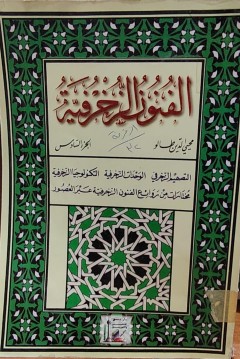 الفنون الزخرفية
محيي الدين طالو
الجزء السادس
التصميم الزخرفي الوحدات الزخرفية التكنولوجيا الزخرفية
مختارات من روائع الفنون الزخرفية عبر العصور